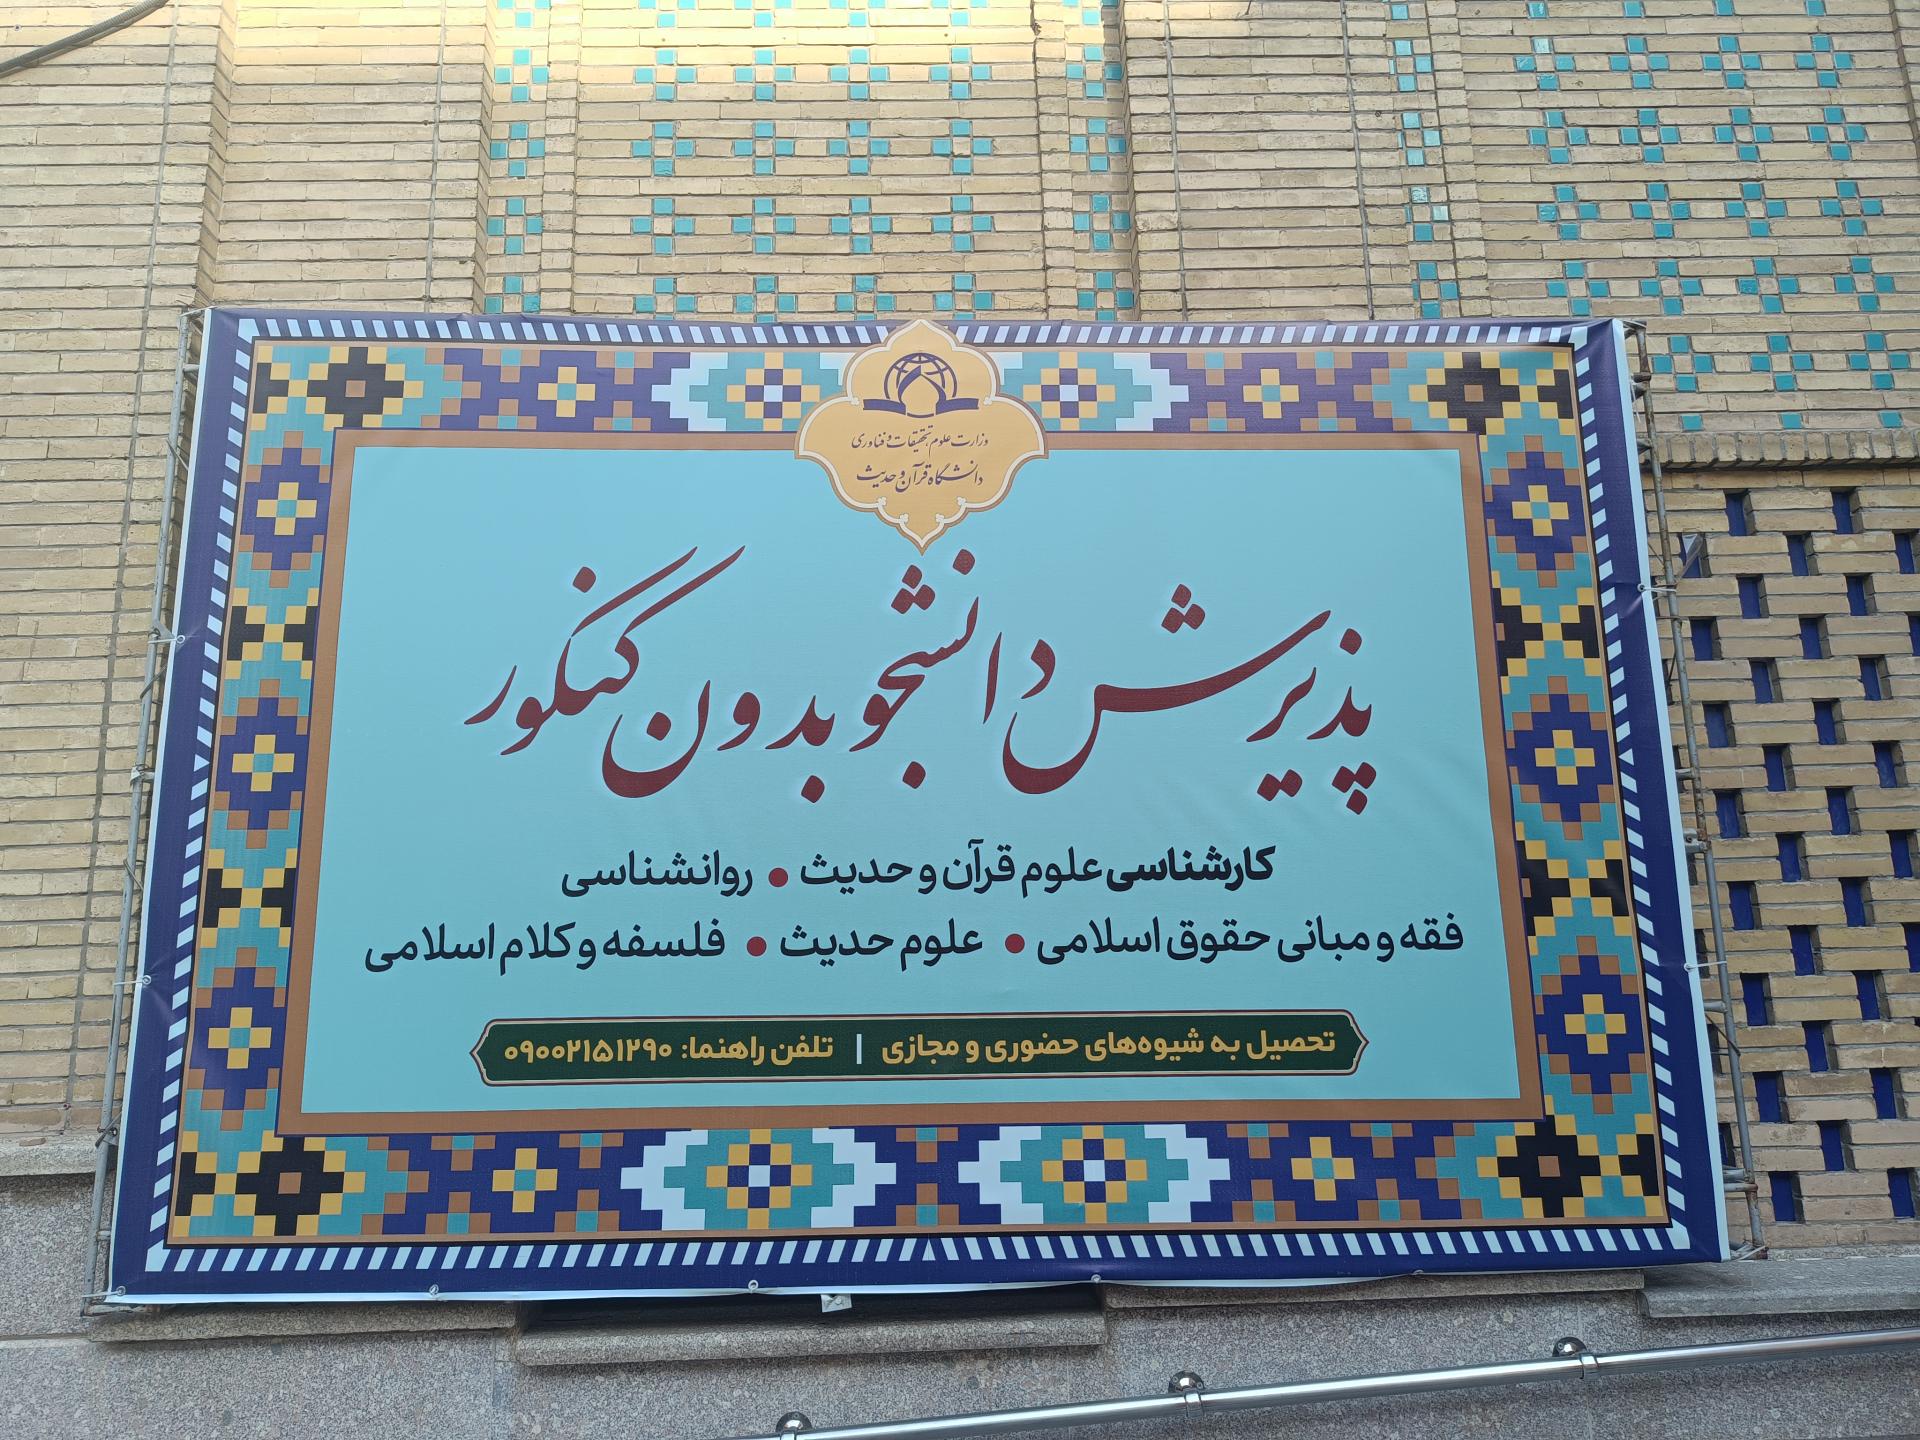 وزارت علوم، تحقیقات و فناوری
دانشگاه قرآن و حدیث
پذیرش دانشجو بدون کنکور
کارشناسی علوم قرآن و حدیث • روانشناسی
فقه و مبانی حقوق اسلامی • علوم حدیث • فلسفه و کلام اسلامی
تحصیل به شیوه‌های حضوری و مجازی | تلفن راهنما: ۰۹۰۰۲۱۵۱۲۹۰